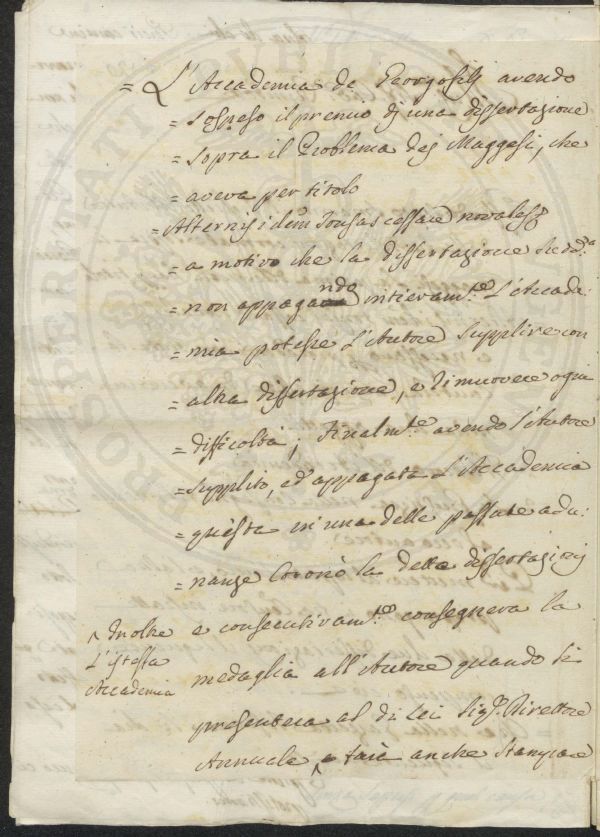 = L'Accademia de Georgofilj avendo
= sospeso il premio dj una dissertazione
= sopra il Problema dej Maggesi, che
= aveva per titolo
= Alternis idem tonsas cessare novales
= a motivo che la dissertazione
= non appagando intieram.te L'Accade:
= mia potesse L'Autore Supplire con
= altra dissertazione, e rimuovere ogni
= difficoltà; Finalm.te avendo l'Autore
= Supplito, ed appagata L'Accademia
= questa in una delle passate adu:
= nanze Coronò la detta dissertazionj
e consecutivam.te consegnerà la
medaglia all'Autore quando si
presenterà al di Lei Sig.r Direttore
Annuale ^ farà anche Stampare
^ Inoltre
L'istessa
Accademia
PUBLICAE
PROSPERITATI